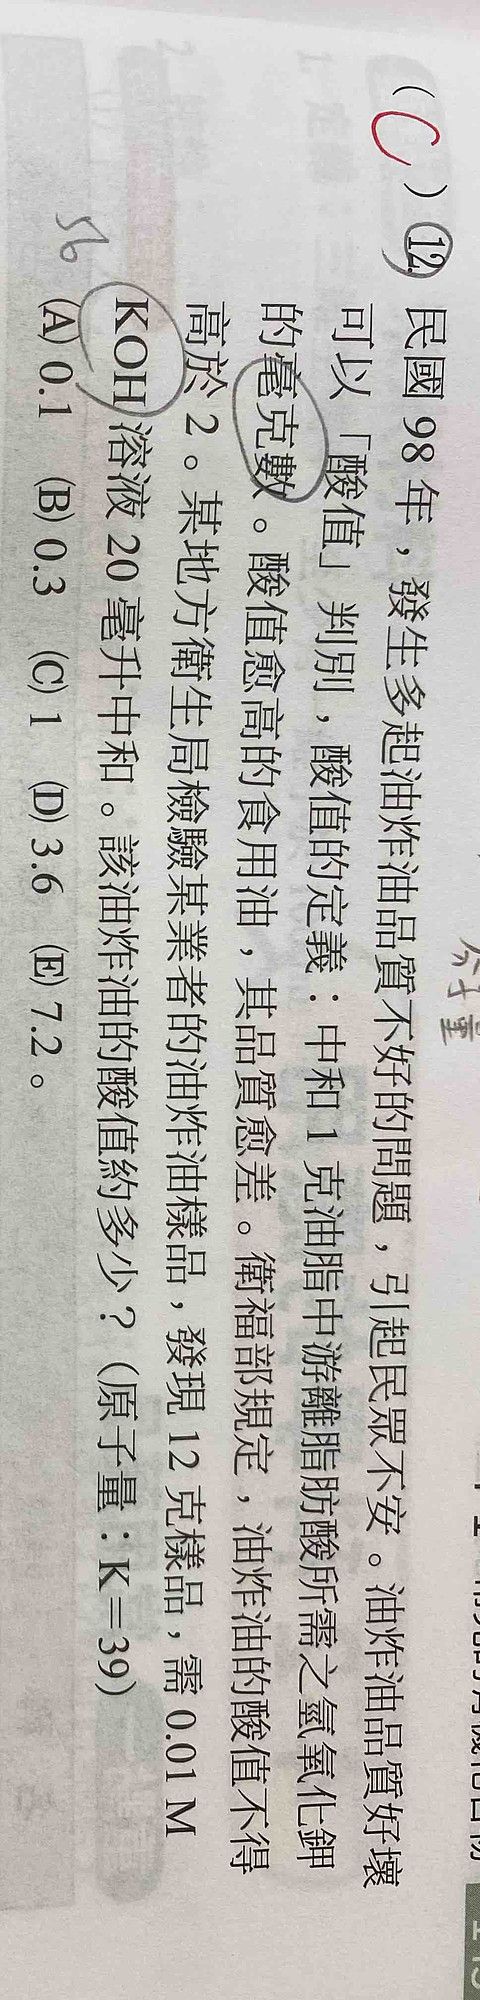 (C) 12. 民國 98 年，發生多起油炸油品質不好的問題，引起民眾不安。油炸油品質好壞
可以「酸值」判別，酸值的定義：中和 1 克油脂中游離脂肪酸所需之氫氧化鉀
的毫克數。酸值愈高的食用油，其品質愈差。衛福部規定，油炸油的酸值不得
高於 2。某地方衛生局檢驗某業者的油炸油樣品，發現 12 克樣品，需 0.01 M
KOH 溶液 20 毫升中和。該油炸油的酸值約多少？（原子量：K＝39）
56
(A) 0.1 (B) 0.3 (C) 1 (D) 3.6 (E) 7.2。
分子量